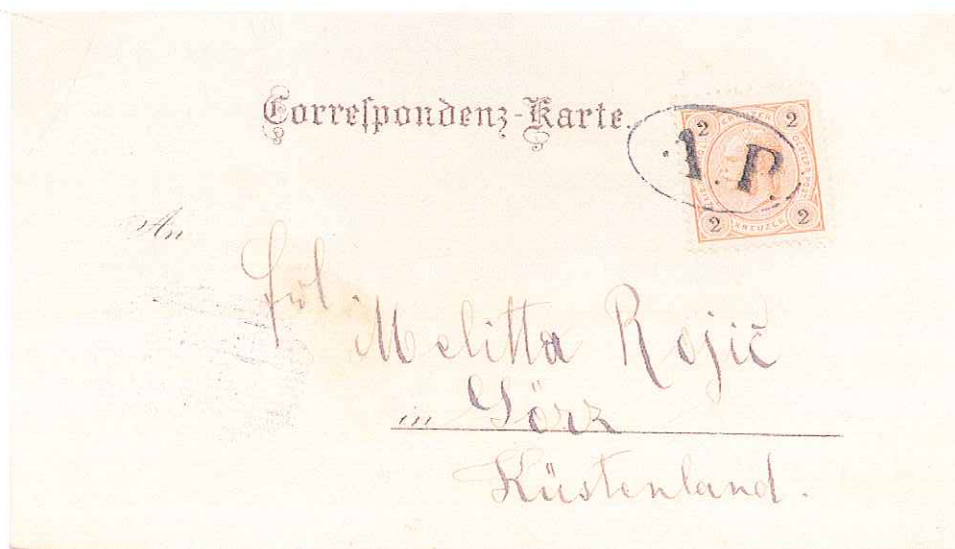 Correſpondenz-Karte.
1 P
2 2
2 2
KREUZER
An
Frl.
Melitta Rojič
in Görz
Küstenland.